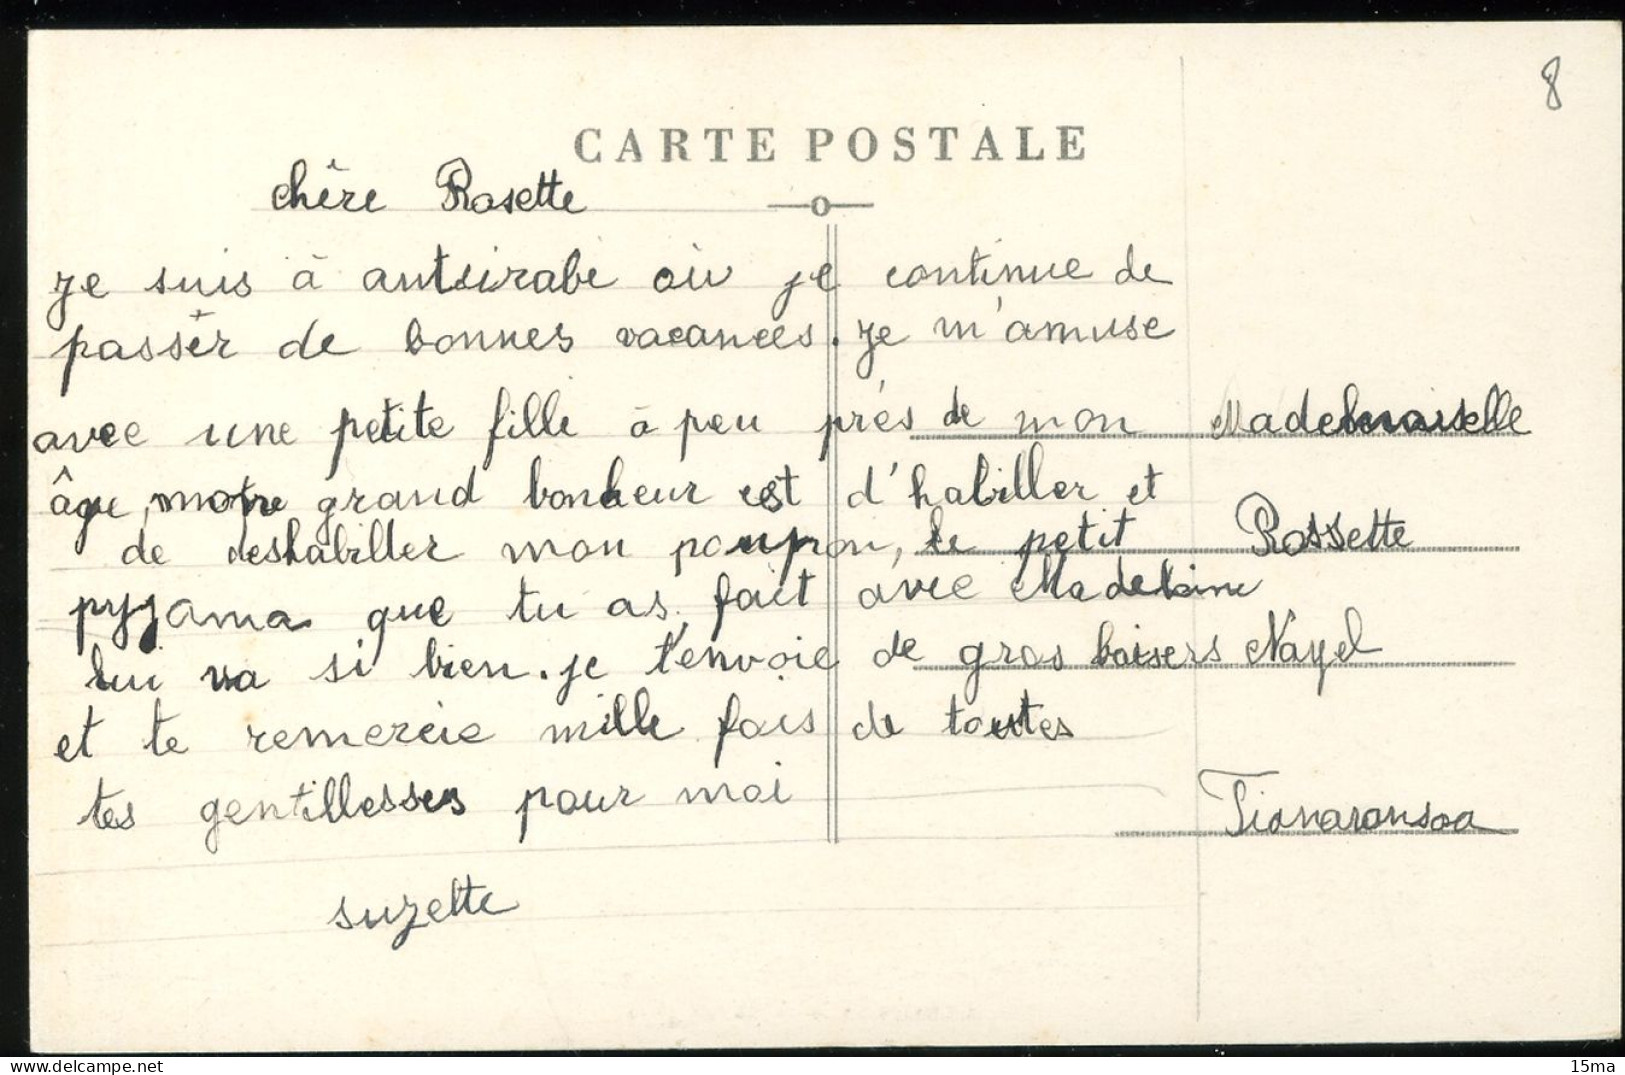 8
CARTE POSTALE
chère Rosette
je suis à antsirabe où je continue de
passer de bonnes vacances. je m'amuse
avec une petite fille à peu près de mon
âge, notre grand bonheur est d'habiller et
de deshabiller mon poupon, le petit
pyjama que tu as fait avec Madeleine
lui va si bien. je t'envoie de gros baisers
et te remercie mille fois de toutes
tes gentillesses pour moi
suzette
Mademoiselle
Rossette
Nayel
Fianaransoa
15ma